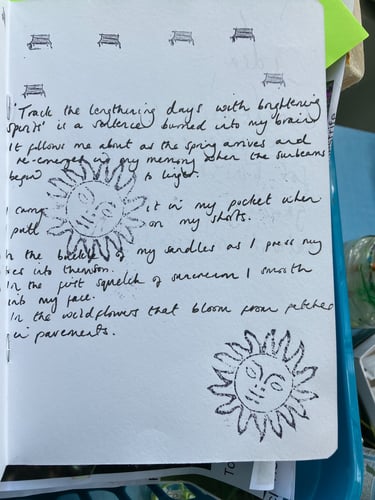 'Track the lengthening days with brightening
spirits' is a sentence burned into my brain
It follows me about as the spring arrives and
re-emerges in my memory when the sunbeams
begin to linger.
I carry it in my pocket when
pull on my shorts.
In the buckle of my sandles as I press my
toes into
In the first squelch of suncream I smooth
into my face.
In the wildflowers that bloom from patches
in pavements.